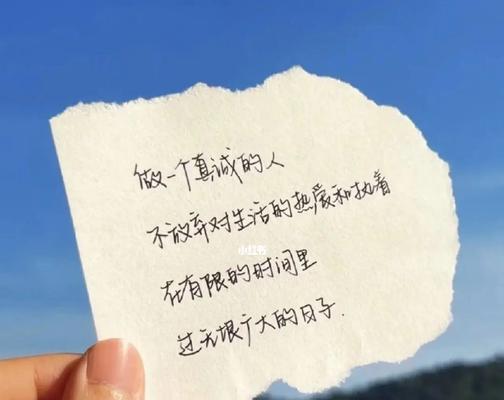 做一个真诚的人
不放弃对生活的热爱和执着
小红书
在有限的时间里
过无垠广大的日子.